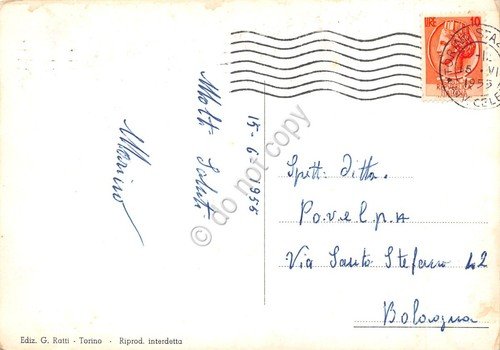 LIRE 10
1955
15-6-1955
Molti Saluti
Marino
Spett. Ditta.
Povelpa
Via Santo Stefano 42
Bologna
Ediz. G. Ratti - Torino - Riprod. interdetta
do not copy